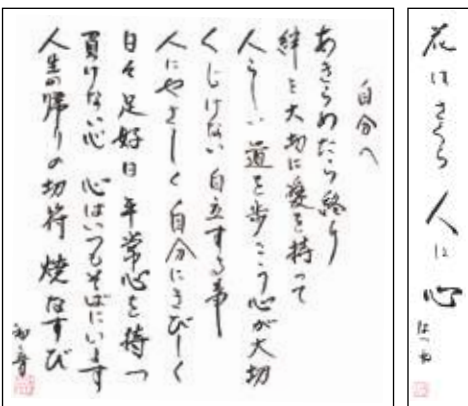 自分へ
あきらめたら終り
絆を大切に愛を持って
人らしい道を歩こう心が大切
くじけない自立する事
人にやさしく自分にきびしく
日々是好日平常心を持つ
負けない心 心はいつもそばにいます
人生の帰りの切符 焼なすび
花はさくら 人は心
はつね